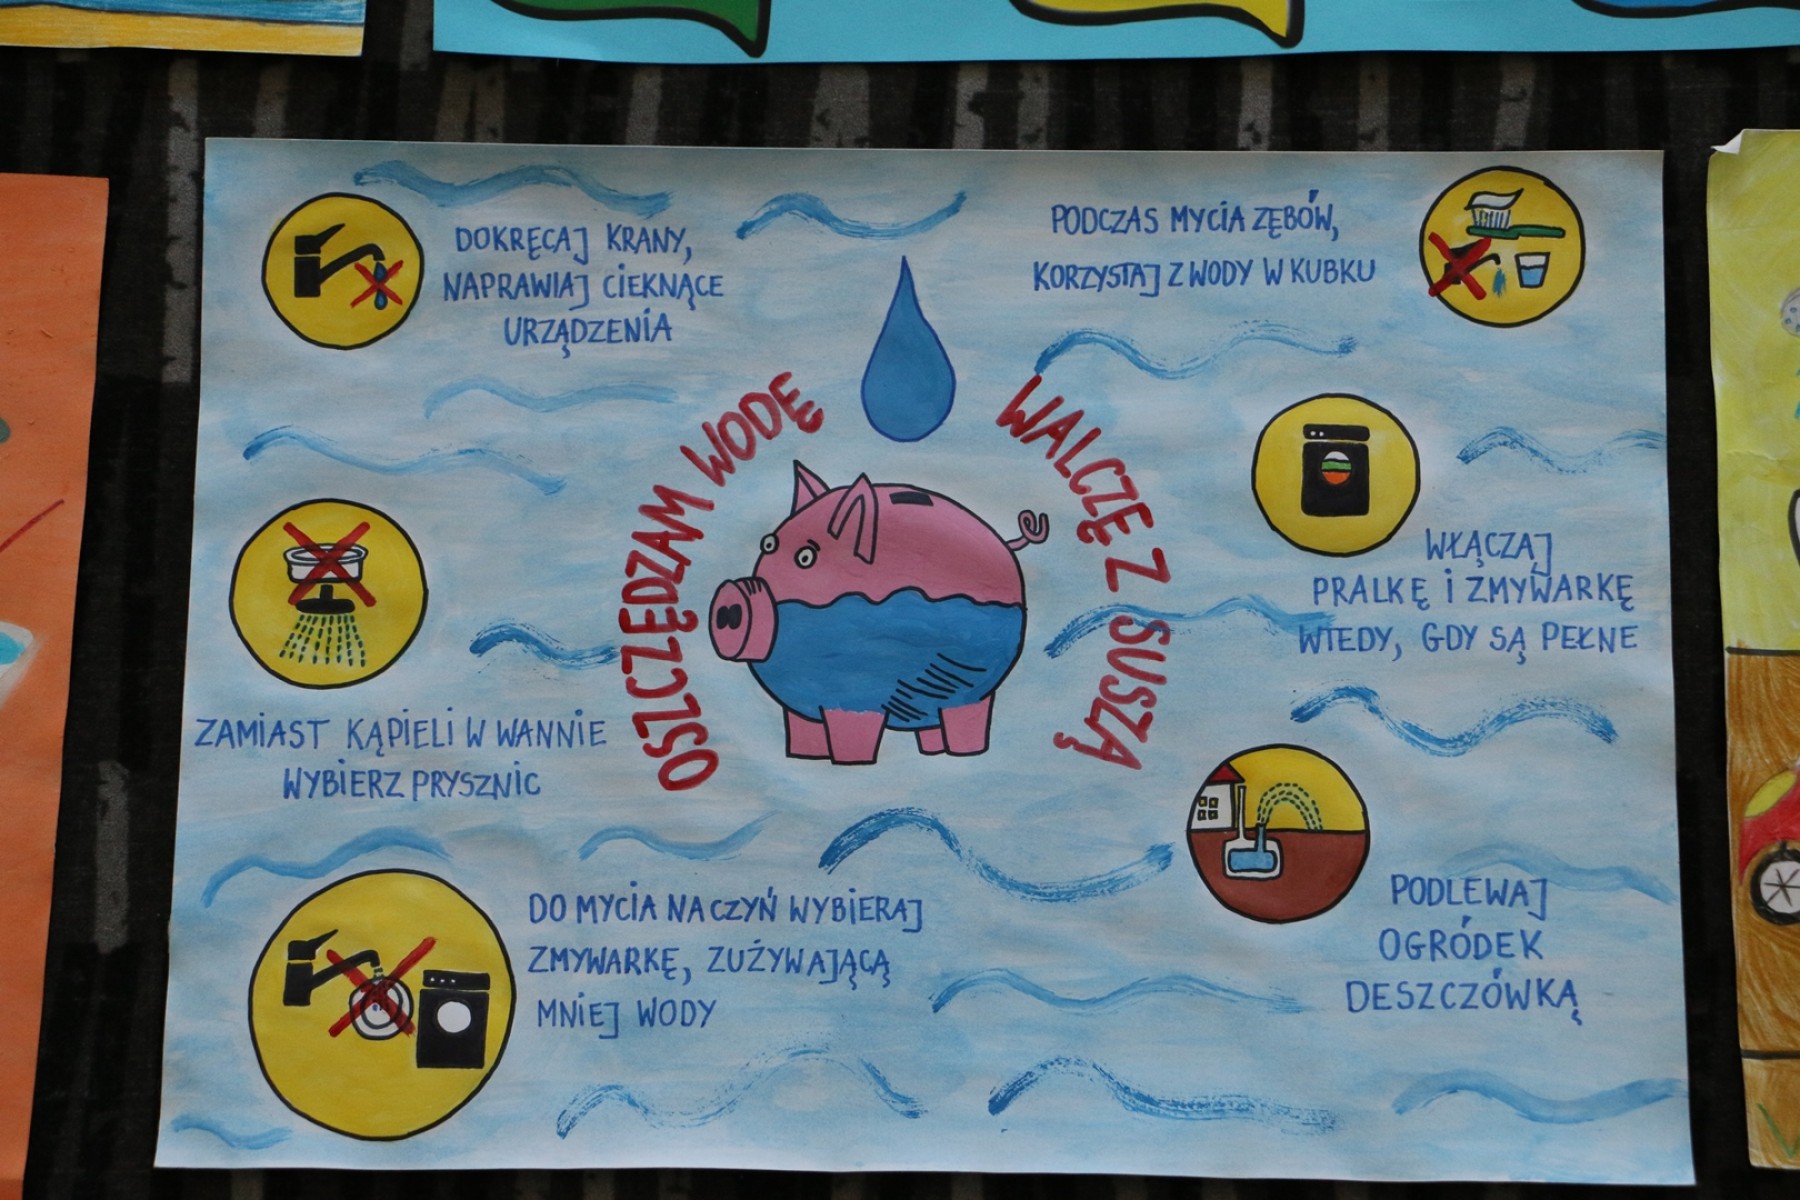 DOKRĘCAJ KRANY,
NAPRAWIAJ CIEKNĄCE
URZĄDZENIA
PODCZAS MYCIA ZĘBÓW,
KORZYSTAJ Z WODY W KUBKU
OSZCZĘDZAM WODĘ
WALCZĘ Z SUSZĄ
WŁĄCZAJ
PRALKĘ I ZMYWARKĘ
WTEDY, GDY SĄ PEŁNE
ZAMIAST KĄPIELI W WANNIE
WYBIERZ PRYSZNIC
DO MYCIA NACZYŃ WYBIERAJ
ZMYWARKĘ, ZUŻYWAJĄCĄ
MNIEJ WODY
PODLEWAJ
OGRÓDEK
DESZCZÓWKĄ